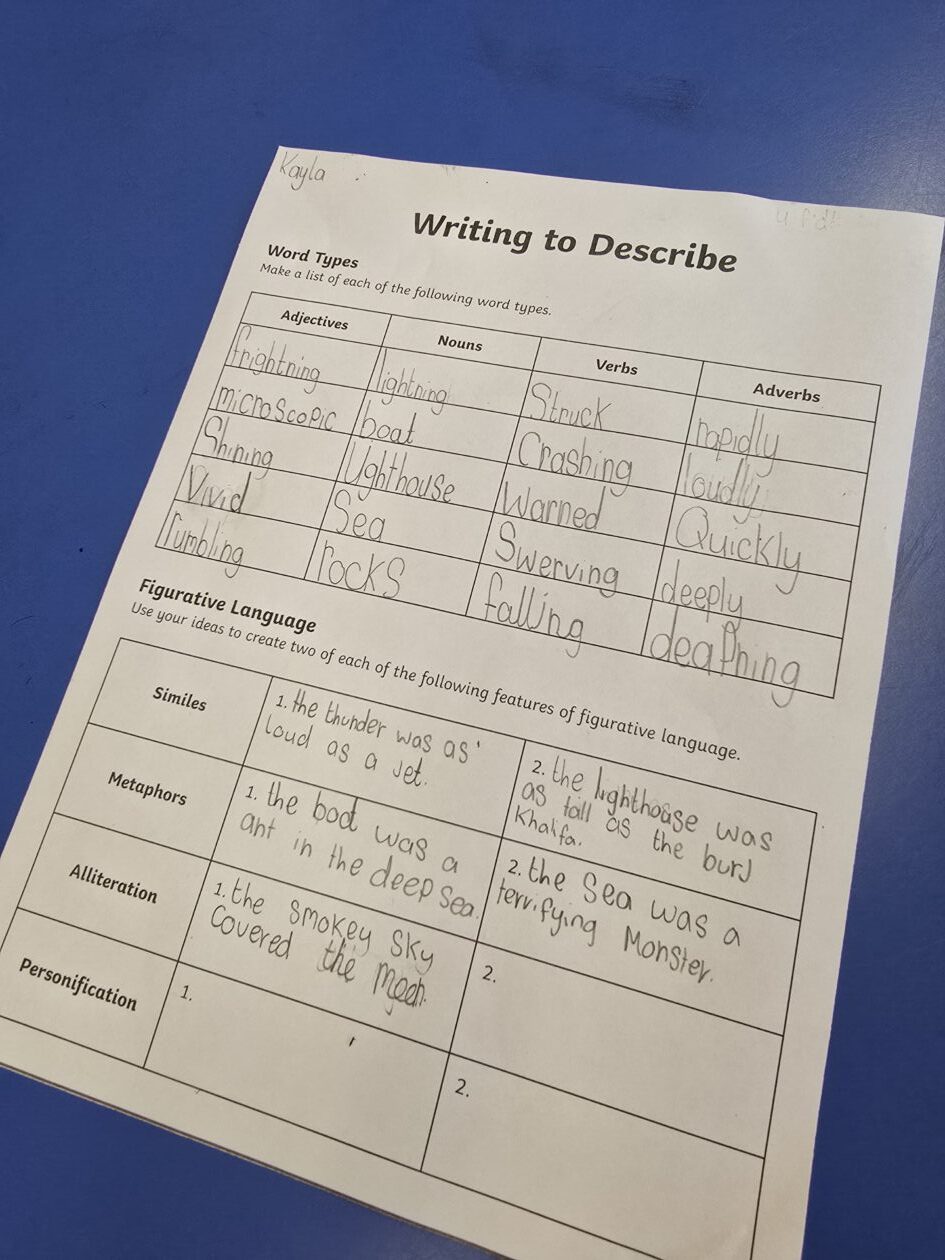 Kayla
Writing to Describe
Word Types
Make a list of each of the following word types.
Adjectives Nouns Verbs Adverbs
frightning lightning Struck rapidly
microscopic boat Crashing loudly
Shining Lighthouse Warned Quickly
Vivid Sea Swerving deeply
rumbling rocks falling deaphing
Figurative Language
Use your ideas to create two of each of the following features of figurative language.
Similes
1. the thunder was as
loud as a jet.
2. the lighthouse was
as tall as the burj
Khalifa.
Metaphors
1. the boat was a
ant in the deep sea.
2. the sea was a
terrifying Monster.
Alliteration
1. the smokey sky
covered the moon.
2.
Personification
1.
2.